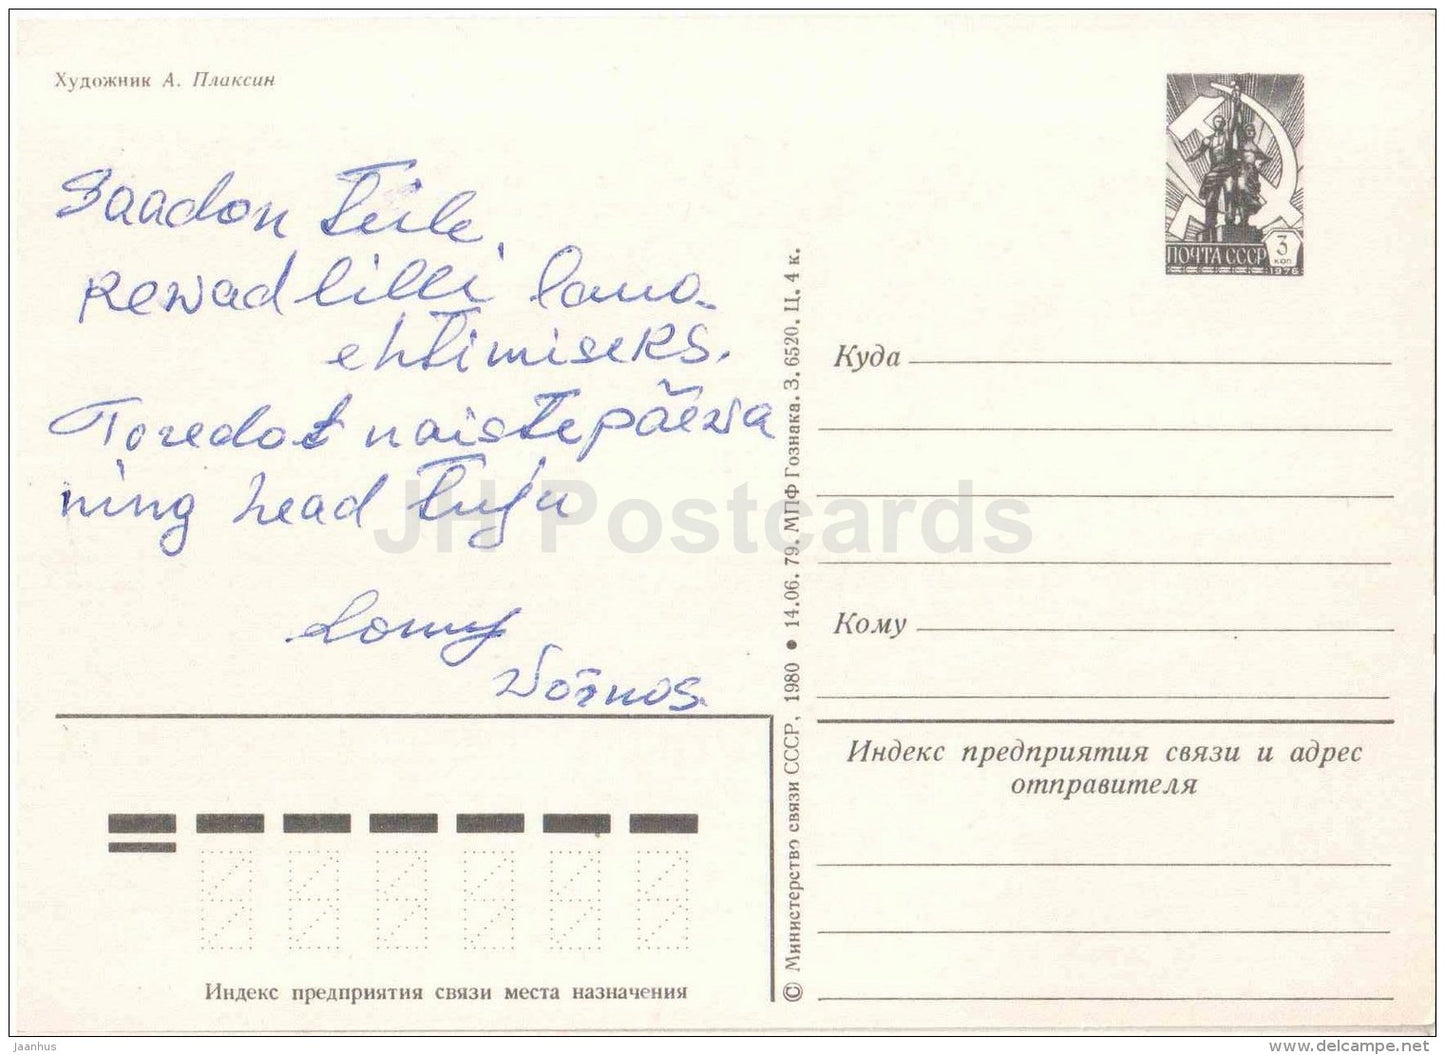 Художник А. Плаксин
ПОЧТА СССР 3 КОП 1976
Saadan Teile
kevad lilli lauo-
ehtimiseks.
Toredat naistepäeva
ning head tuju
JH Postcards
Куда
Кому
Индекс предприятия связи и адрес
отправителя
© Министерство связи СССР, 1980 • 14.06. 79. МПФ Гознака. З. 6520. Ц. 4 к.
Индекс предприятия связи места назначения
Jaanhus
www.delcampe.net